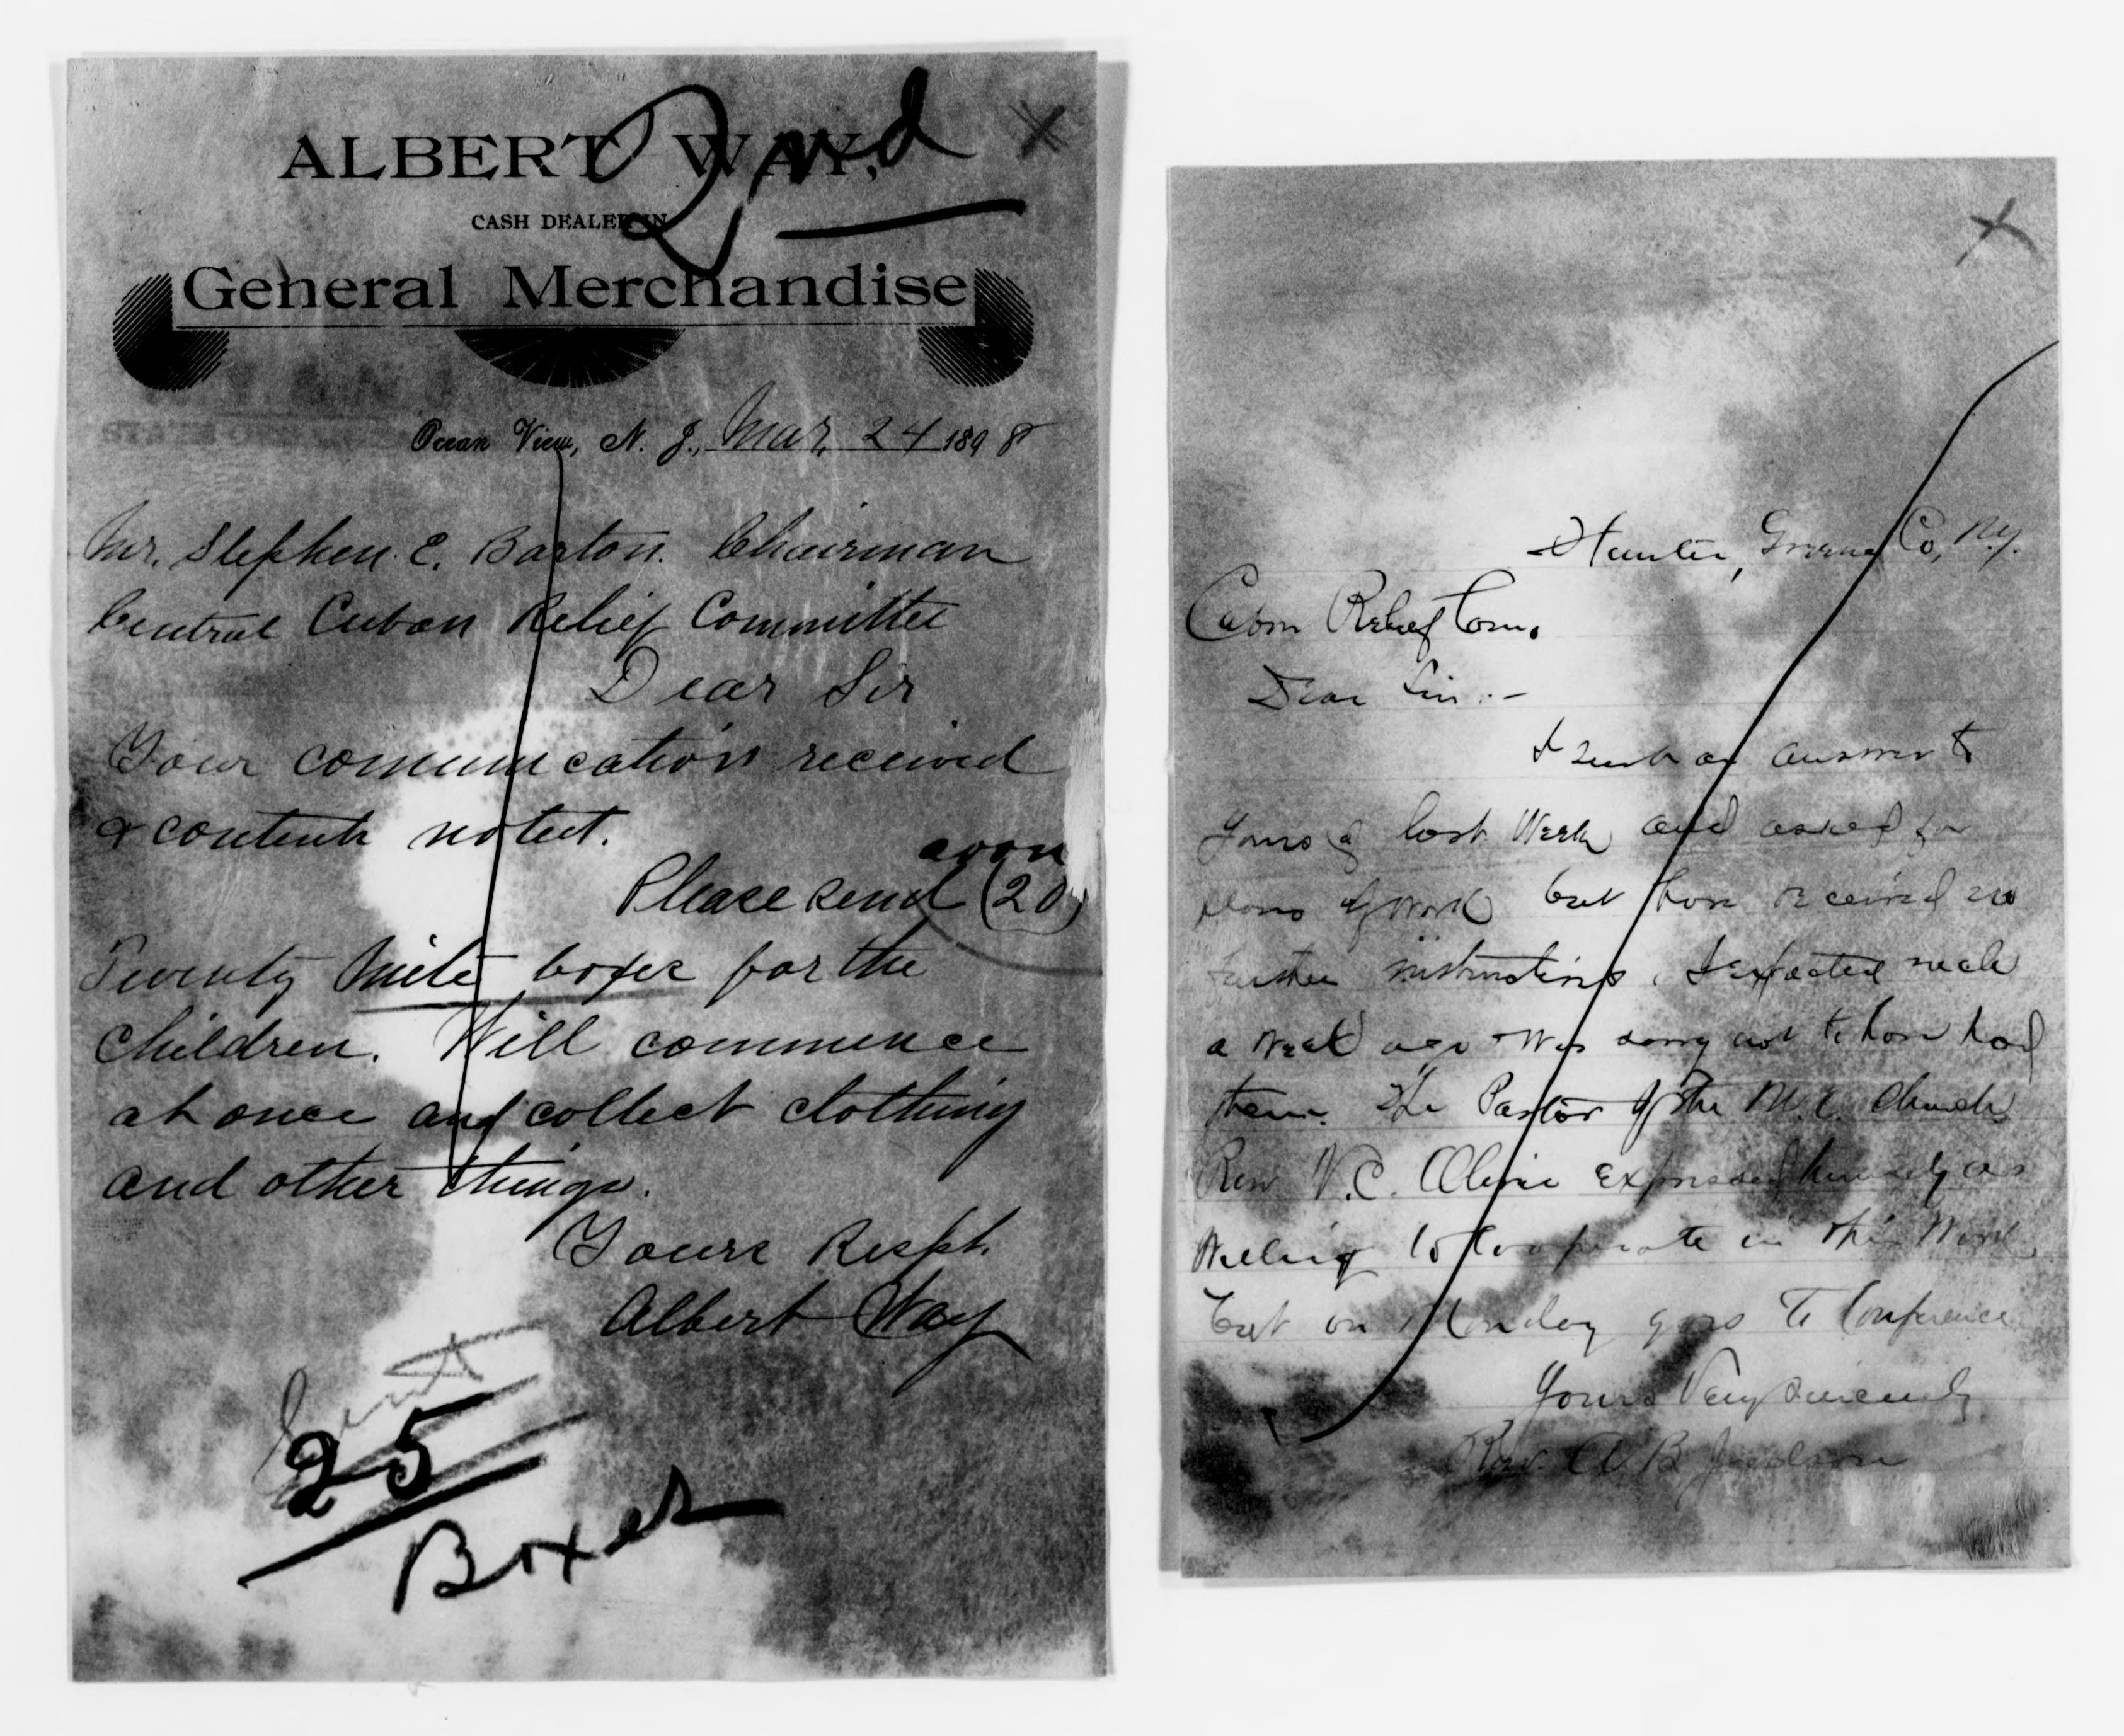 2nd
X
ALBERT WAY,
CASH DEALER IN
General Merchandise
Ocean View, N. J., Mar, 24 1898
Mr. Stephen. E. Barton. Chairman
Central Cuban Relief Committee
Dear Sir
Your comunication received
& contents noted.
Please send (20)
Twenty Mite boxes for the
children. Will commence
at once and collect clothing
and other things.
Yours Respt.
Albert Way
Sent
25
Boxes
X
Hunter, Greene Co, N.Y.
Cubon Relief Com.
Dear Sir:-
I sent an answer to
Yours of last Week and asked for
plans of work but have received no
further instructions. I expected such
a week ago Was sorry not to have had
them. The Pastor of the M. E. Church
Rev V.C. expressed himself as
Willing to cooperate in this Work
but on Monday goes to Conference
Yours Very Sincerely
Rev. A B Judson